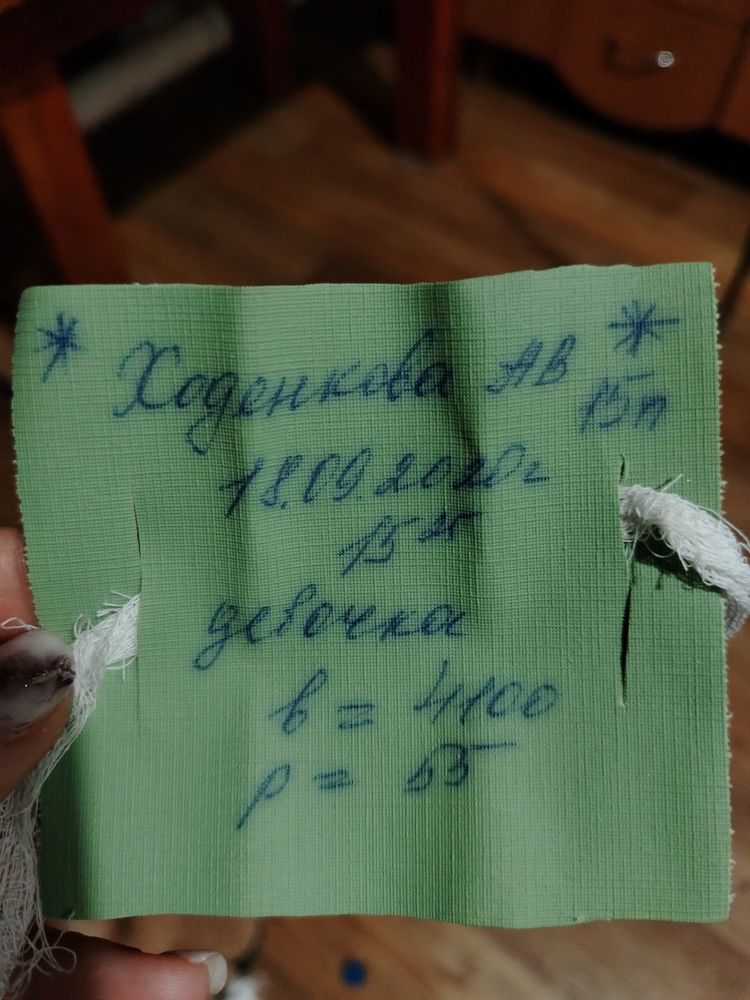 * Ходенкова АВ *
15п
18.09.2020г
15 25
девочка
в = 4100
р = 55